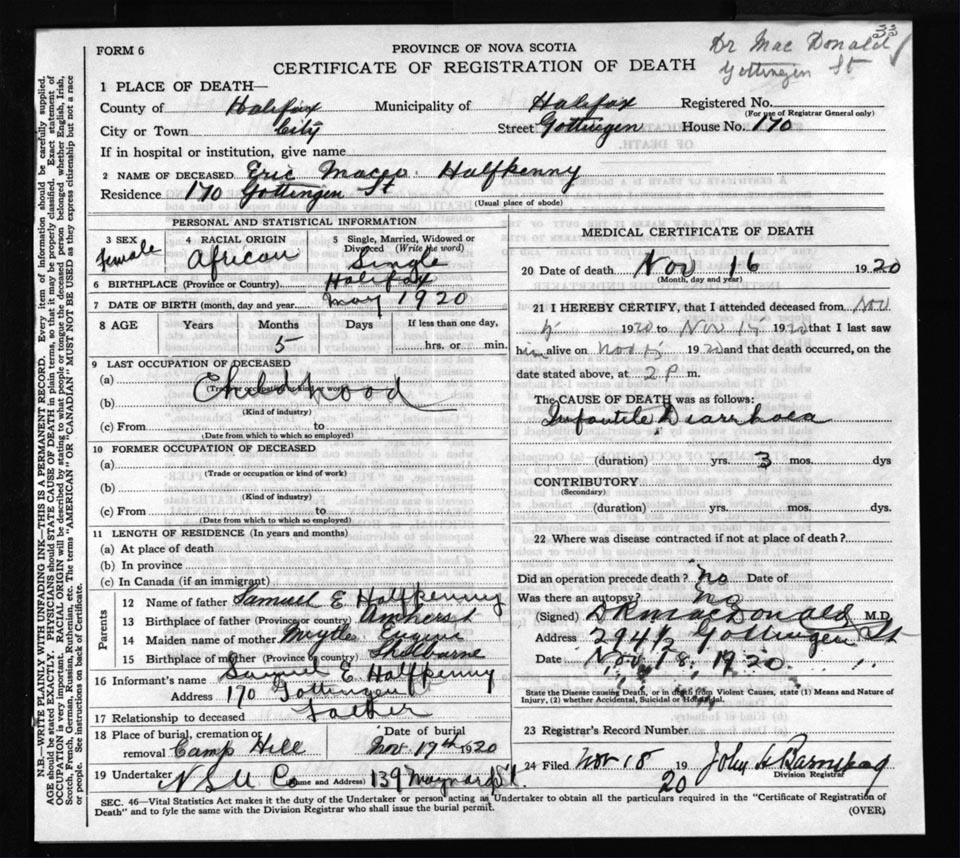 33
Dr MacDonald
Gottingen St
FORM 6
PROVINCE OF NOVA SCOTIA
CERTIFICATE OF REGISTRATION OF DEATH
1 PLACE OF DEATH—
County of Halifax Municipality of Halifax Registered No.
(For use of Registrar General only)
City or Town City Street Gottingen House No. 170
If in hospital or institution, give name
2 NAME OF DECEASED Eric Maceo Halfkenny
Residence 170 Gottingen St
(Usual place of abode)
PERSONAL AND STATISTICAL INFORMATION
3 SEX female 4 RACIAL ORIGIN African 5 Single, Married, Widowed or Divorced (Write the word) Single
6 BIRTHPLACE (Province or Country) Halifax
7 DATE OF BIRTH (month, day and year) May 1920
8 AGE Years Months 5 Days If less than one day, hrs. or min.
9 LAST OCCUPATION OF DECEASED
(a) Childhood
(Trade or occupation or kind of work)
(b)
(Kind of industry)
(c) From to
(Date from which to which so employed)
10 FORMER OCCUPATION OF DECEASED
(a)
(Trade or occupation or kind of work)
(b)
(Kind of industry)
(c) From to
(Date from which to which so employed)
11 LENGTH OF RESIDENCE (In years and months)
(a) At place of death
(b) In province
(c) In Canada (if an immigrant)
Parents
12 Name of father Samuel E Halfkenny
13 Birthplace of father (Province or country) Amherst
14 Maiden name of mother Myrtle
15 Birthplace of mother (Province or country) Shelburne
16 Informant's name Samuel E. Halfkenny
Address 170 Gottingen
17 Relationship to deceased Father
18 Place of burial, cremation or removal Camp Hill Date of burial Nov. 19th 1920
19 Undertaker N S U Co (Name and Address) 139 Maynard St.
MEDICAL CERTIFICATE OF DEATH
20 Date of death Nov 16 1920
(Month, day and year)
21 I HEREBY CERTIFY, that I attended deceased from Nov
1920 to Nov 15 1920 that I last saw
him alive on Nov 15 1920 and that death occurred, on the
date stated above, at 2 P m.
The CAUSE OF DEATH was as follows:
Infantile Diarrhoea
(duration) yrs. 3 mos. dys
CONTRIBUTORY
(Secondary)
(duration) yrs. mos. dys.
22 Where was disease contracted if not at place of death?
Did an operation precede death? no Date of
Was there an autopsy? no
(Signed) D R MacDonald M.D
Address 294½ Gottingen St
Date Nov. 18. 1920
State the Disease causing Death, or in death from Violent Causes, state (1) Means and Nature of
Injury, (2) whether Accidental, Suicidal or Homicidal.
23 Registrar's Record Number
24 Filed Nov 18 1920 John
Division Registrar
SEC. 46—Vital Statistics Act makes it the duty of the Undertaker or person acting as Undertaker to obtain all the particulars required in the "Certificate of Registration of
Death" and to fyle the same with the Division Registrar who shall issue the burial permit.
(OVER)
N.B.—WRITE PLAINLY WITH UNFADING INK—THIS IS A PERMANENT RECORD. Every item of information should be carefully supplied.
AGE should be stated EXACTLY. PHYSICIANS should STATE CAUSE OF DEATH in plain terms, so that it may be properly classified. Exact statement of
OCCUPATION is very important. RACIAL ORIGIN will be described by stating to what people or tongue the deceased person belonged whether English, Irish,
Scotch, French, German, Russian, Ruthenian, etc. The terms "AMERICAN" OR "CANADIAN" MUST NOT BE USED as they express citizenship but not a race
or people. See instructions on back of Certificate.